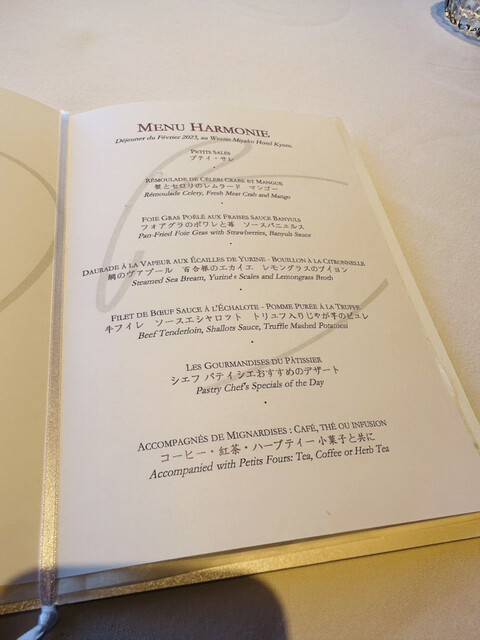 MENU HARMONIE
Déjeuner du Février 2023, au Westin Miyako Hotel Kyoto
PETITS SALÉS
プティ・サレ
RÉMOULADE DE CÉLERI CRABE ET MANGUE
蟹とセロリのレムラード　マンゴー
Rémoulade Celery, Fresh Meat Crab and Mango
FOIE GRAS POÊLÉ AUX FRAISES SAUCE BANYULS
フォアグラのポワレと苺　ソースバニュルス
Pan-Fried Foie Gras with Strawberries, Banyuls Sauce
DAURADE À LA VAPEUR AUX ÉCAILLES DE YURINE - BOUILLON À LA CITRONNELLE
鯛のヴァプール　百合根のエカイエ　レモングラスのブイヨン
Steamed Sea Bream, Yuriné's Scales and Lemongrass Broth
FILET DE BŒUF SAUCE À L'ÉCHALOTE - POMME PURÉE À LA TRUFFE
牛フィレ　ソースエシャロット　トリュフ入りじゃが芋のピュレ
Beef Tenderloin, Shallots Sauce, Truffle Mashed Potatoes
LES GOURMANDISES DU PÂTISSIER
シェフ パティシエおすすめのデザート
Pastry Chef's Specials of the Day
ACCOMPAGNÉS DE MIGNARDISES : CAFÉ, THÉ OU INFUSION
コーヒー・紅茶・ハーブティー 小菓子と共に
Accompanied with Petits Fours: Tea, Coffee or Herb Tea